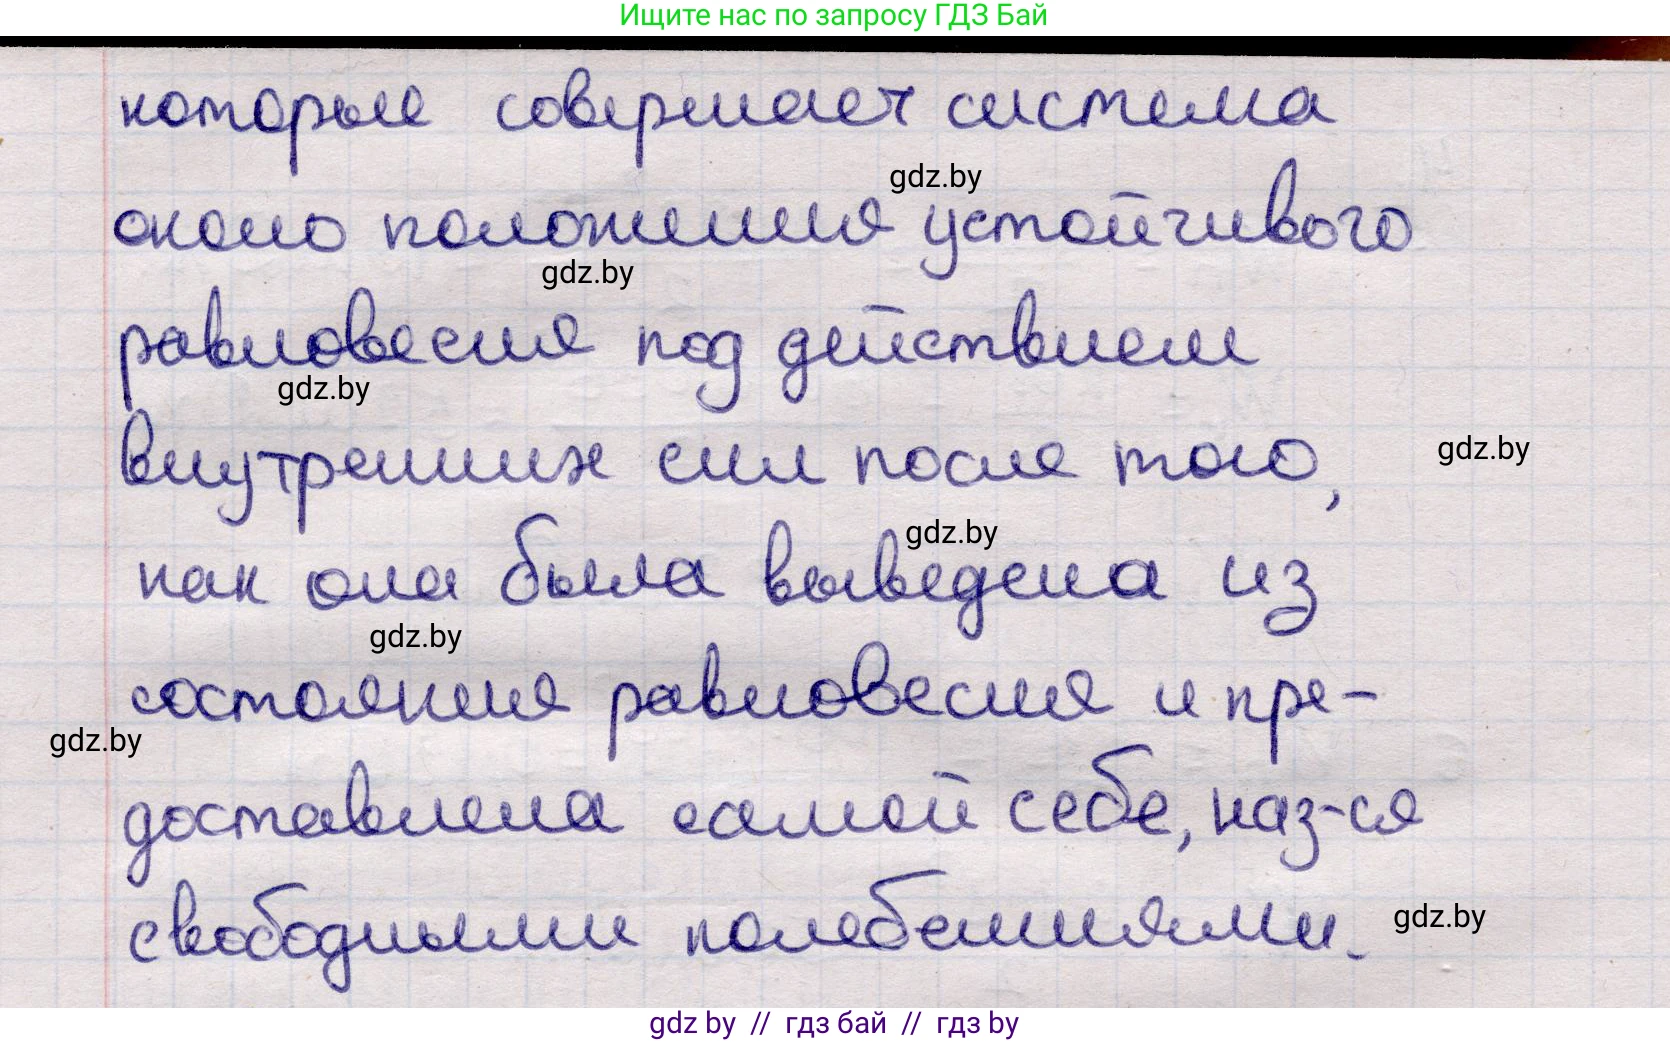 Ищите нас по запросу ГДЗ Бай
которые совершает система
gdz.by
около положения устойчивого
gdz.by
равновесия под действием
gdz.by
внутренних сил после того,
gdz.by
gdz.by
как она была выведена из
gdz.by
состояния равновесия и пре-
gdz.by
доставлена самой себе, наз-ся
свободными колебаниями.
gdz.by
gdz by // гдз бай // гдз by